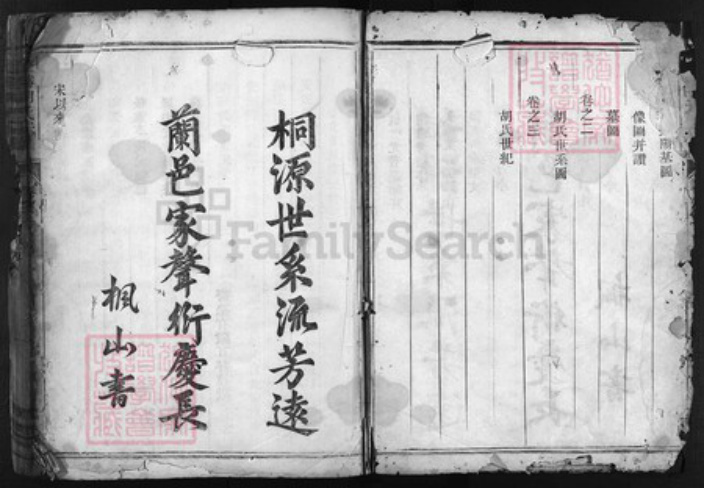 像圖并讚
墓圖
卷之二
胡氏世系圖
卷之三
胡氏世紀
桐源世系流芳遠
蘭邑家聲衍慶長
楓山書
宋以來
FamilySearch